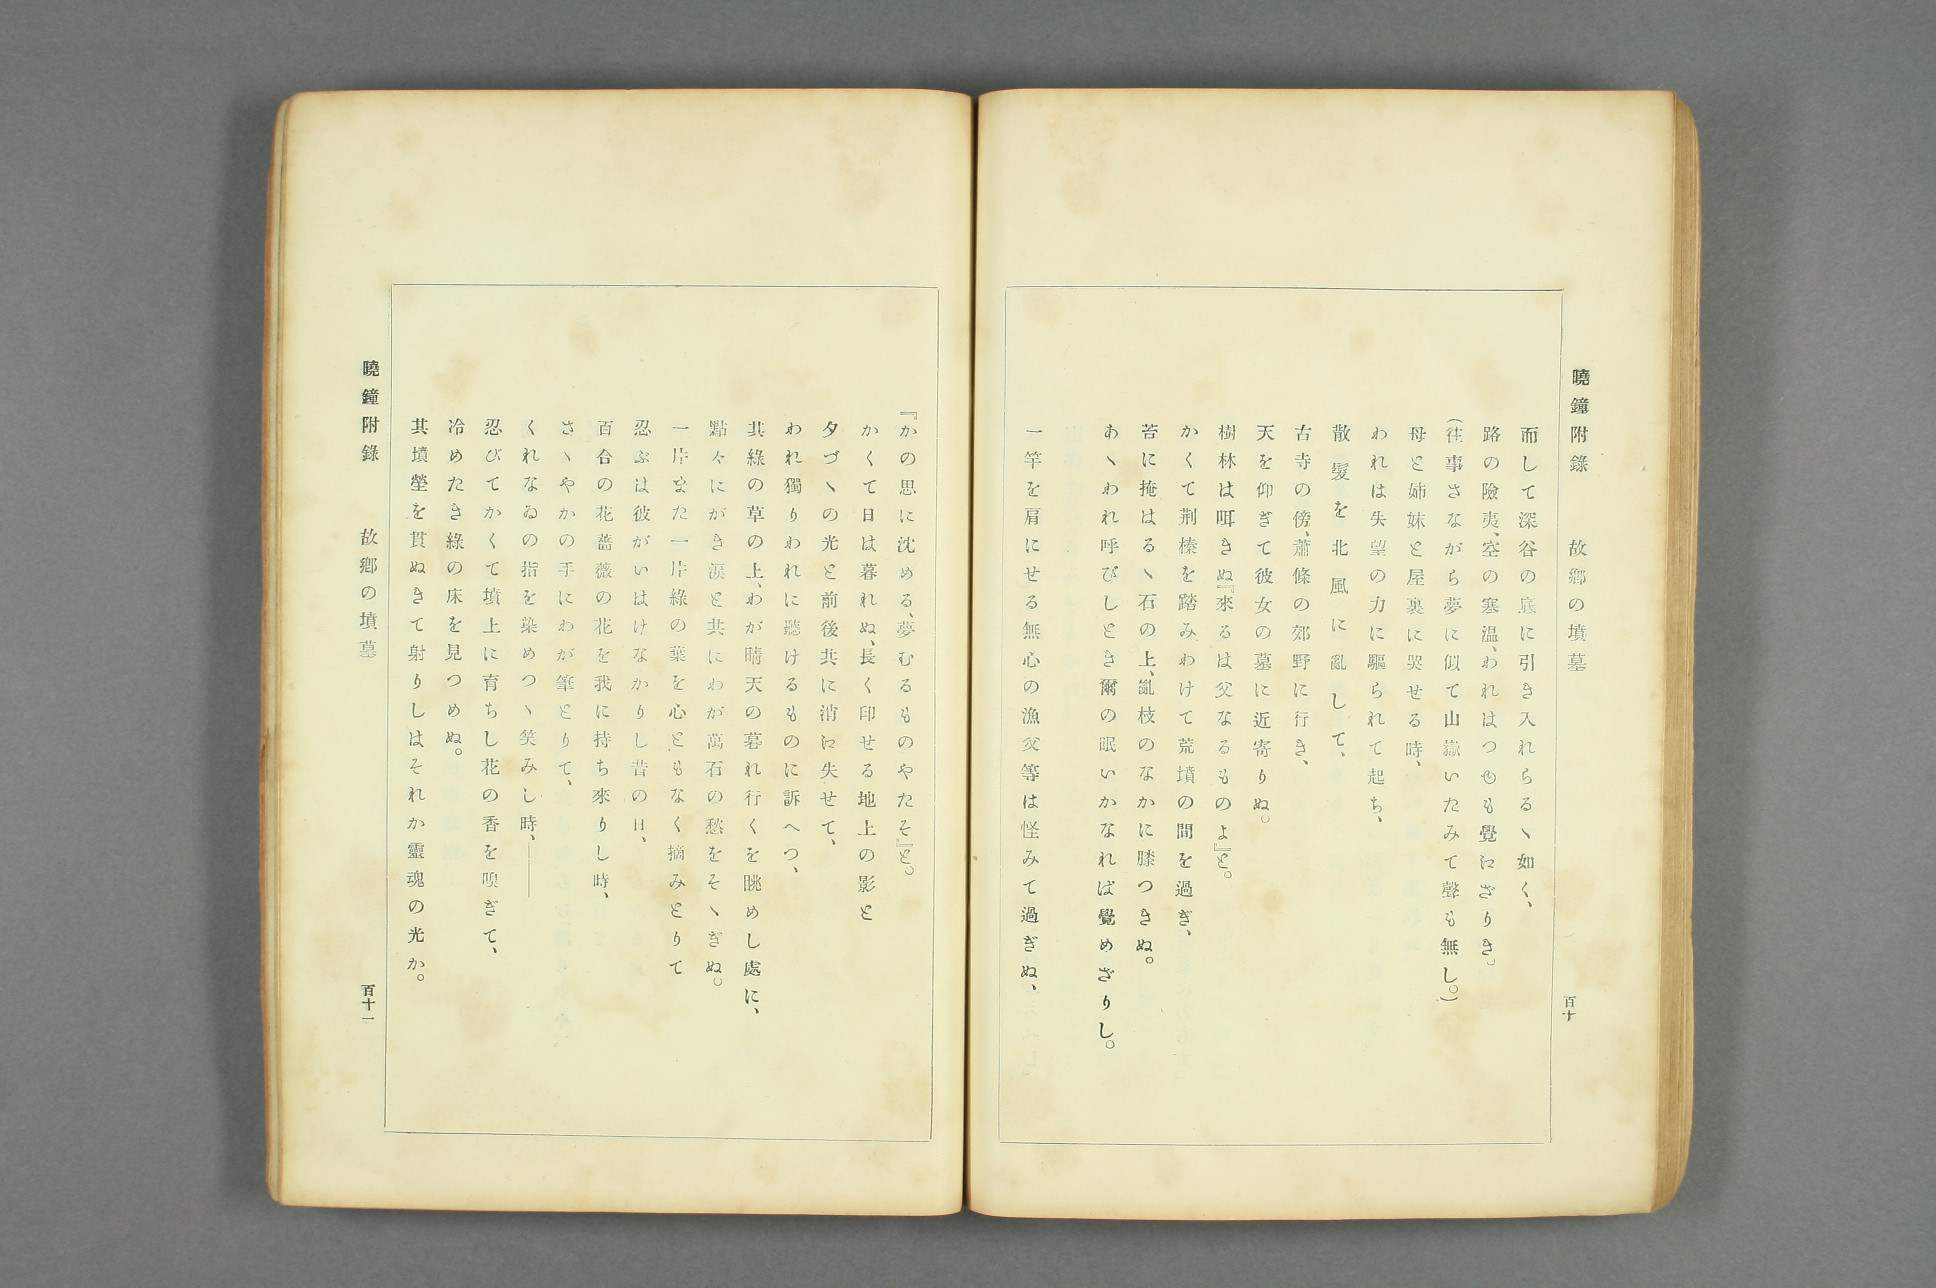 曉鐘附錄　故鄕の墳墓　百十
而して深谷の底に引き入れらるゝ如く、
路の險夷、空の寒温、われはつゆも覺えざりき。
（徃事さながら夢に似て山嶽いたみて聲も無し。）
母と姉妹と屋裏に哭せる時、
われは失望の力に驅られて起ち、
散髮を北風に亂して、
古寺の傍、蕭條の郊野に行き、
天を仰ぎて彼女の墓に近寄りぬ。
樹林は咡きぬ『來るは父なるものよ』と。
かくて荆榛を踏みわけて荒墳の間を過ぎ、
苔に掩はるゝ石の上、亂枝のなかに膝つきぬ。
あゝわれ呼びしとき爾の眠いかなれば覺めざりし。
一竿を肩にせる無心の漁父等は怪みて過ぎぬ、
『かの思に沈める、夢むるものやたそ』と。
かくて日は暮れぬ、長く印せる地上の影と
夕づゝの光と前後共に消え失せて、
われ獨りわれに聽けるものに訴へつ、
其綠の草の上、わが晴天の暮れ行くを眺めし處に、
點々にがき涙と共にわが萬石の愁をそゝぎぬ。
一片また一片綠の葉を心ともなく摘みとりて
忍ぶは彼がいはけなかりし昔の日、
百合の花薔薇の花を我に持ち來りし時、
さゝやかの手にわが筆とりて、
くれなゐの指を染めつゝ笑みし時、——
忍びてかくて墳上に育ちし花の香を嗅ぎて、
冷めたき綠の床を見つめぬ。
其墳塋を貫ぬきて射りしはそれか靈魂の光か。
曉鐘附錄　故鄕の墳墓　百十一